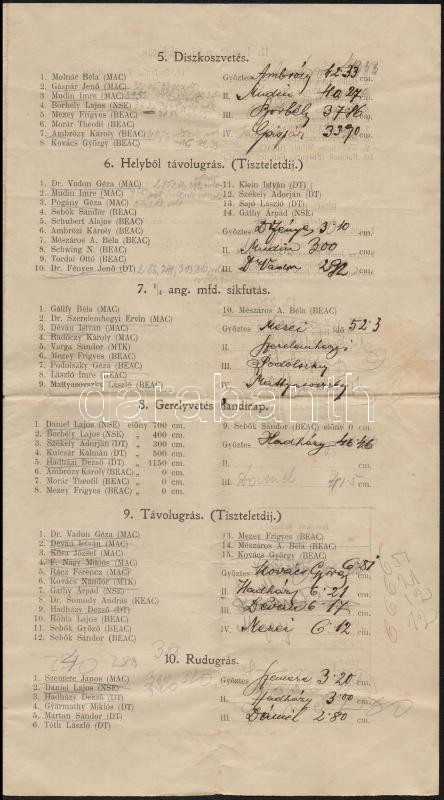 5. Diszkoszvetés.
1. Molnár Béla (MAC)
2. Gáspár Jenő (MAC)
3. Mudin Imre (MAC)
4. Borhély Lajos (NSE)
5. Mezey Frigyes (BEAC)
6. Morár Theofil (BEAC)
7. Ambrózy Károly (BEAC)
8. Kovács György (BEAC)
Győztes Ambrózy 42·33
II. Mudin 40·27 cm.
III. Borbély 37·86 cm.
IV. Gáspár 33·90 cm.
6. Helyből távolugrás. (Tiszteletdíj.)
1. Dr. Vadon Géza (MAC)
2. Mudin Imre (MAC)
3. Pogány Géza (MAC)
4. Sebők Sándor (BEAC)
5. Schubert Alajos (BEAC)
6. Ambrózi Károly (BEAC)
7. Mészáros A. Béla (BEAC)
8. Schwing N. (BEAC)
9. Tordai Ottó (BEAC)
10. Dr. Fényes Jenő (DT)
11. Klein István (DT)
12. Székely Adorján (DT)
13. Sajó László (DT)
14. Gáthy Árpád (NSE)
Győztes Dr Fényes 3·10 cm.
II. Mudin 3·00 cm.
III. Dr Vadon 2·92 cm.
7. 1/4 ang. mfd. síkfutás.
1. Gálify Béla (MAC)
2. Dr. Szerelemhegyi Ervin (MAC)
3. Déván István (MAC)
4. Radóczy Károly (MAC)
5. Varga Sándor (MTK)
6. Mezey Frigyes (BEAC)
7. Podolszky Géza (BEAC)
8. László Imre (BEAC)
9. Mattyasovszky László (BEAC)
10. Mészáros A. Béla (BEAC)
Győztes Mezei idő 52·3
II. Szerelemhegyi
III. Podolszky
IV. Mattyasovszky
darabanth
8. Gerelyvetés handicap.
1. Dániel Lajos (NSE) előny 700 cm.
2. Borbély Lajos (NSE) „ 400 cm.
3. Székely Adorján (DT) „ 300 cm.
4. Kulcsár Kálmán (DT) „ 500 cm.
5. Hadházi Dezső (DT) „ 1150 cm.
6. Ambrózy Károly (BEAC) „ 0 cm.
7. Morár Theofil (BEAC) „ 0 cm.
8. Mezey Frigyes (BEAC) „ 0 cm.
9. Sebők Sándor (BEAC) előny 0 cm.
Győztes Hadházy 46·46 cm.
II. cm.
III. Dániel cm.
9. Távolugrás. (Tiszteletdíj.)
1. Dr. Vadon Géza (MAC)
2. Déván István (MAC)
3. Kósa József (MAC)
4. F. Nagy Miklós (MAC)
5. Rácz Ferencz (MAC)
6. Kovács Nándor (MTK)
7. Gáthy Árpád (NSE)
8. Dr. Somody András (KEAC)
9. Hadházy Dezső (DT)
10. Röhla Lajos (BEAC)
11. Sebők Győző (BEAC)
12. Sebők Sándor (BEAC)
13. Mezey Frigyes (BEAC)
14. Mészáros A. Béla (BEAC)
15. Kovács György (BEAC)
Győztes Kovács György 6·81 cm.
II. Hadházy 6·21 cm.
III. Déván 6·17 cm.
IV. Mezei 6·12 cm.
10. Rudugrás.
1. Szemere János (MAC)
2. Dániel Lajos (NSE)
3. Hadházy Dezső (DT)
4. Gyarmathy Miklós (DT)
5. Márton Sándor (DT)
6. Tóth László (DT)
Győztes Szemere 3·20 cm.
II. Hadházy 3·00 cm.
III. Dániel 2·80 cm.